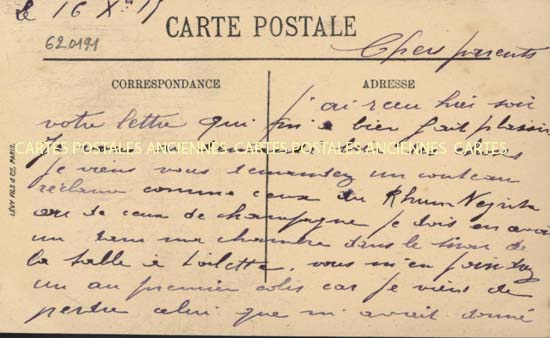 le 16 Xbre 15
CARTE POSTALE
620191
Chers parents
CORRESPONDANCE
ADRESSE
j'ai reçu hier soir
votre lettre qui m'a bien fait plaisir
CARTES POSTALES ANCIENNES CARTES POSTALES ANCIENNES CARTES
Je viens vous demandez un couteau
réclame comme ceux du Rhum Negrita
ou de ceux de champagne je dois en avoir
un dans ma chambre dans le tiroir de
la table à toilette, vous m'en joindrez
un au premier colis car je viens de
perdre celui que m'avait donné
LÉVY FILS & Cie, PARIS